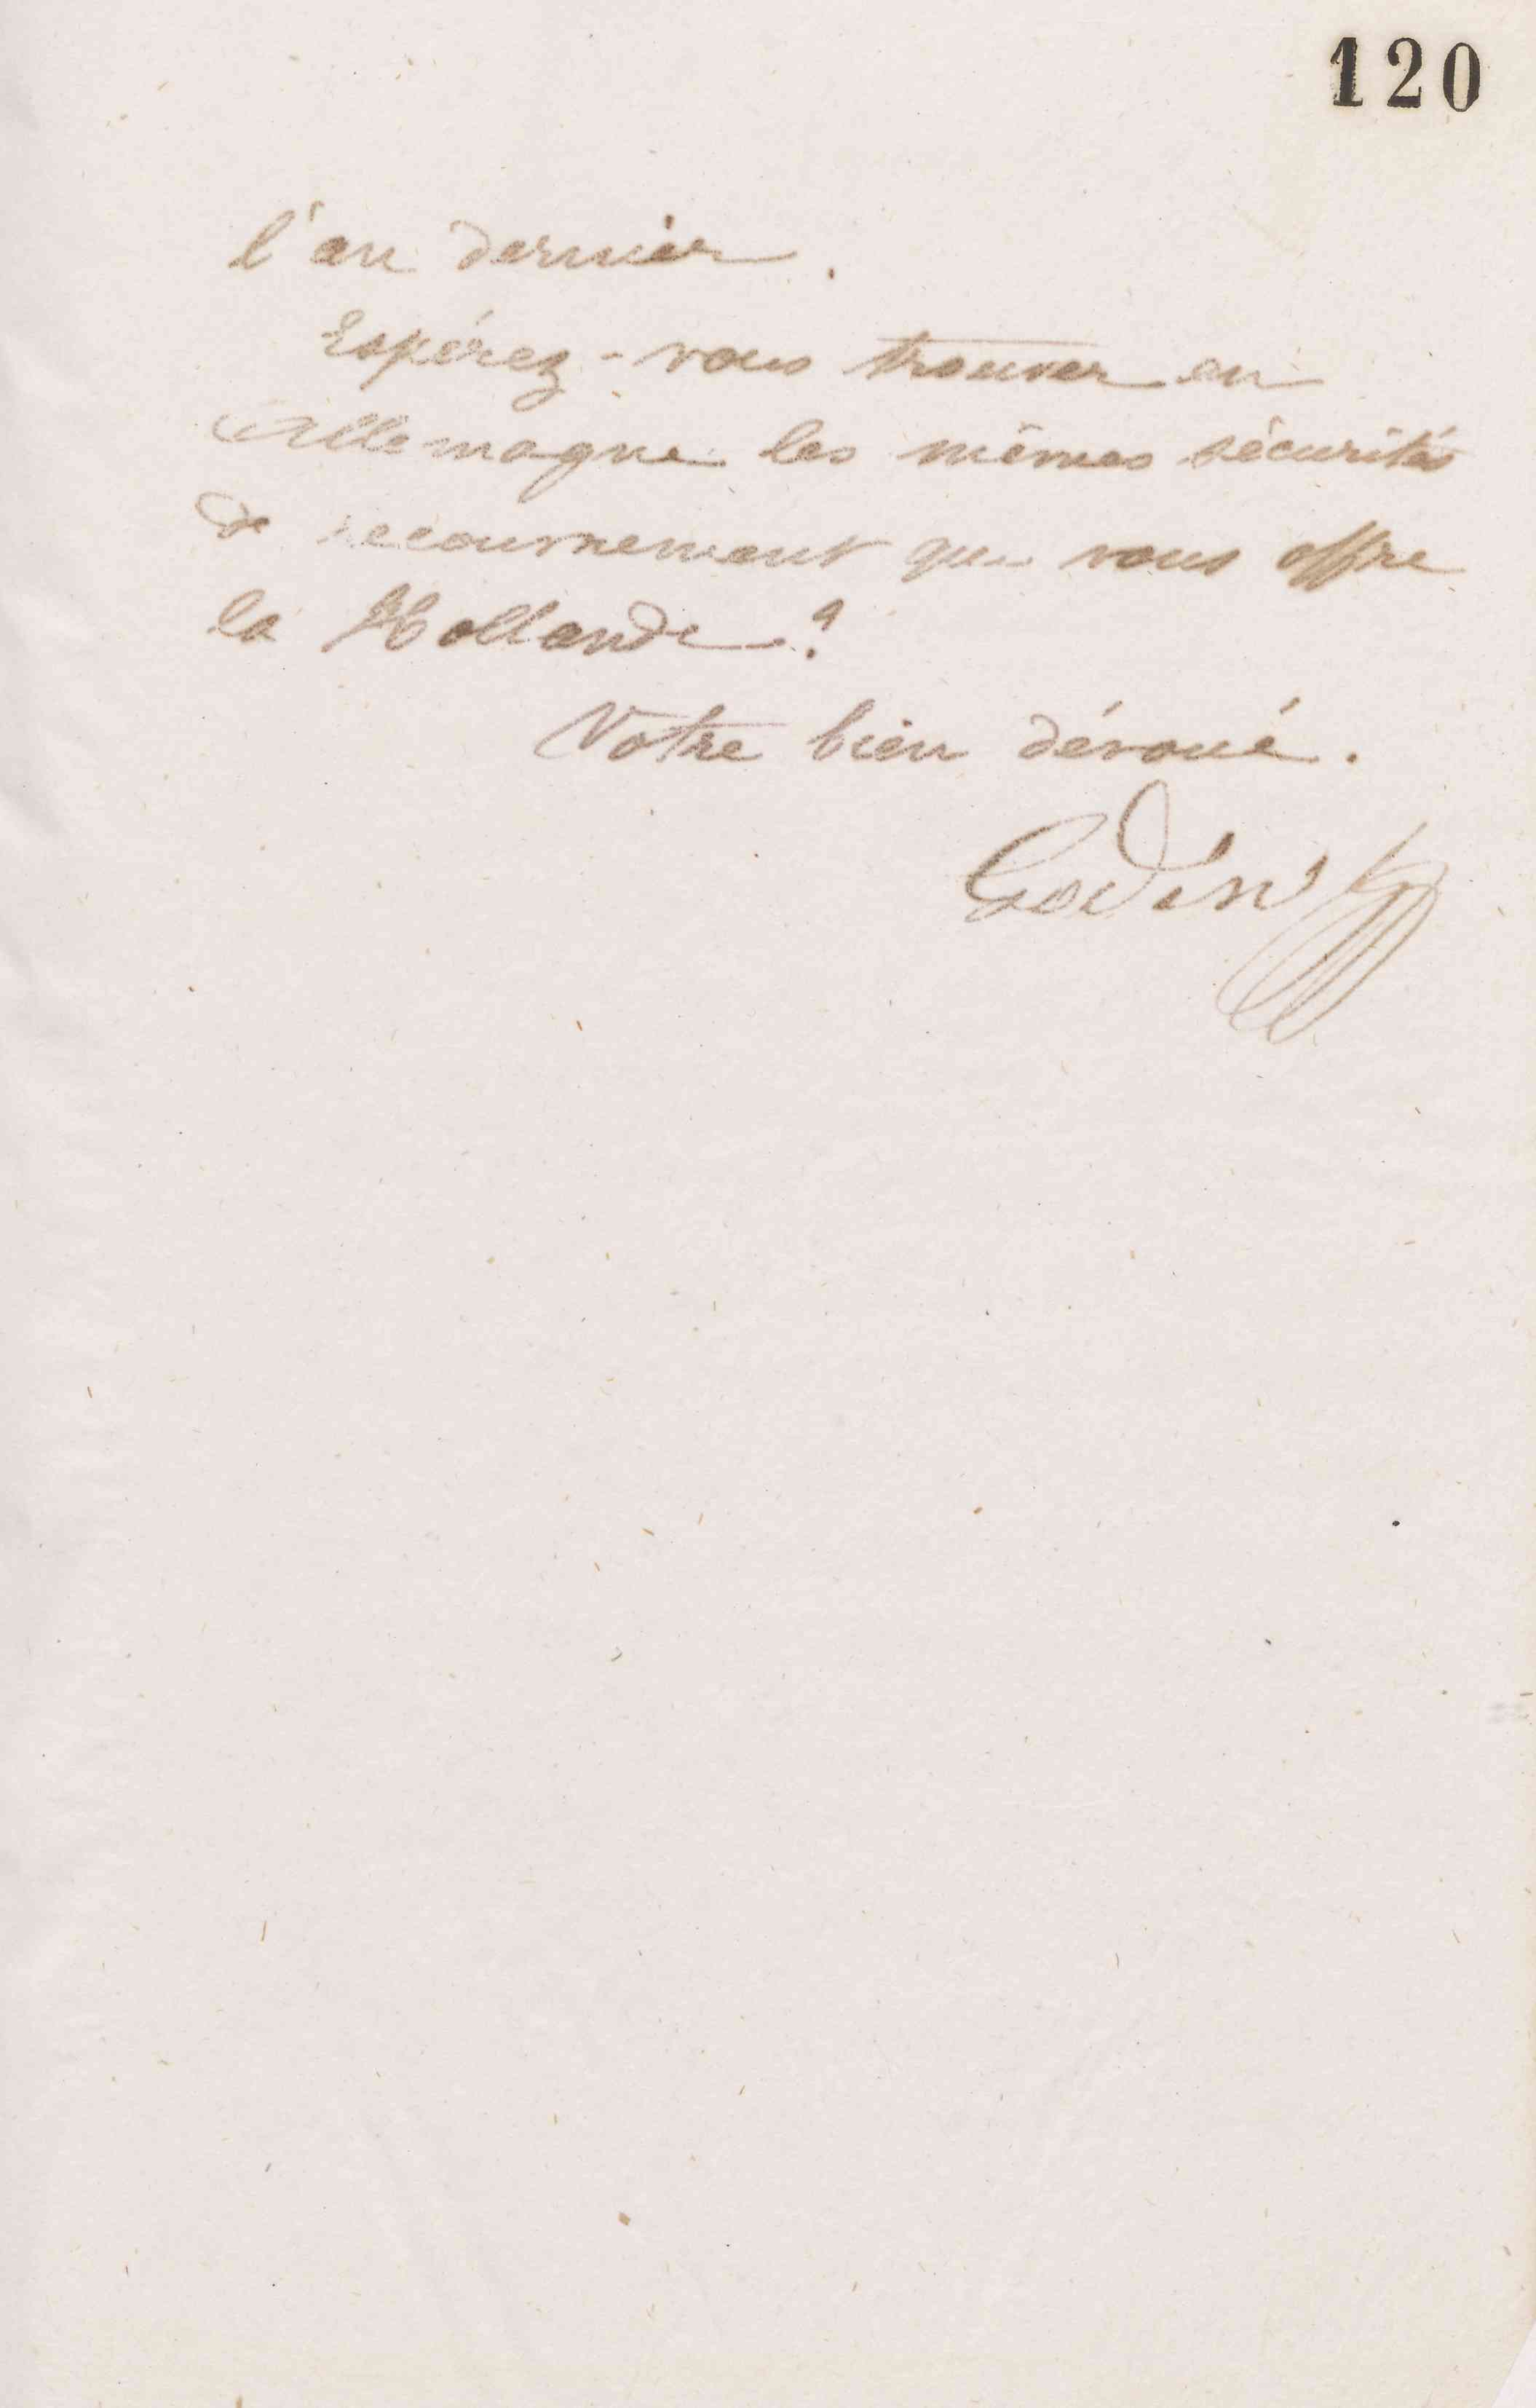 120
l'an dernier.
Espérez-vous trouver en
Allemagne les mêmes sécurités
de que vous offre
la Hollande ?
Votre bien dévoué.
Godin